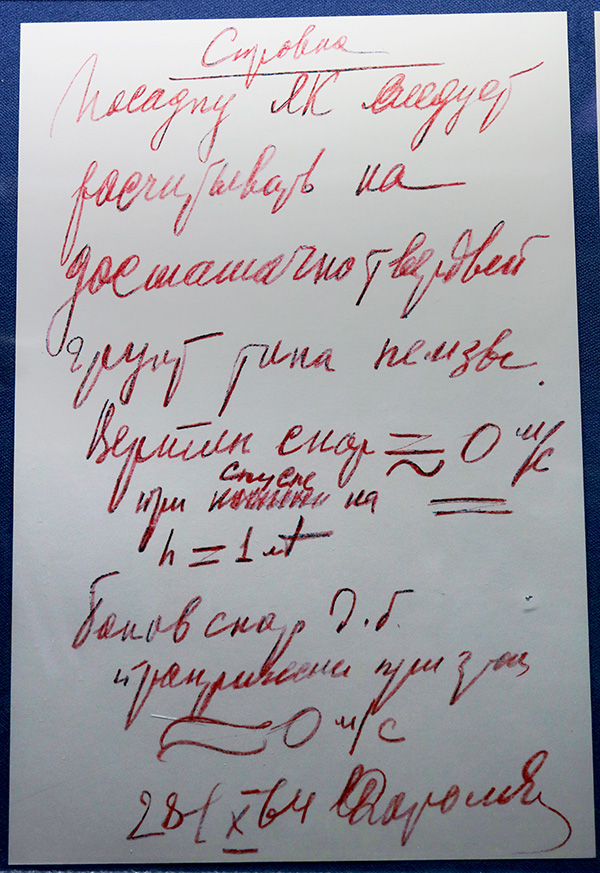 Справка
Посадку ЛК следует
расчитывать на
достаточно твердый
грунт типа пемзы.
Вертик скор ≈ 0 м/с
спуске
при на
h = 1 м
боков скор д.б.
при
≈ 0 м/с
28/X 64 Королев